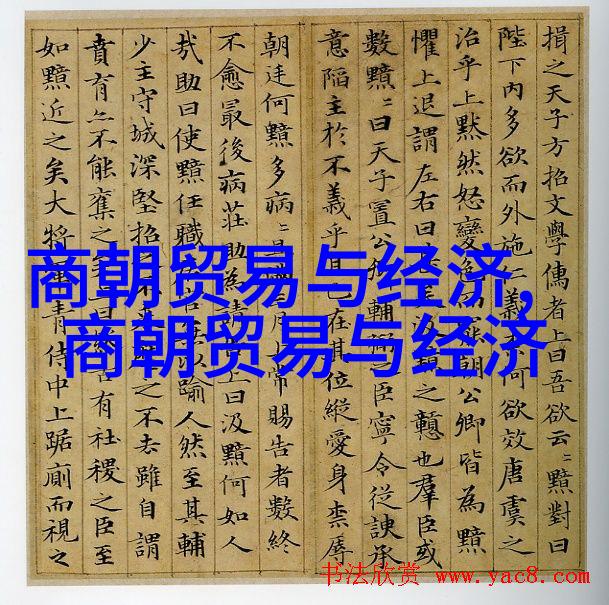 揖之天子方招文學儒者上曰吾欲云〻黯對曰
陛下內多欲而外施仁義奈何欲效唐虞之
治乎上默然怒變色而罷朝公卿皆為黯
懼上退謂左右曰甚矣汲黯之戇也羣臣或
數黯〻曰天子置公卿輔弼之臣寧令從諛承
意陷主於不義乎且已在其位縱愛身柰辱
朝廷何黯多病〻且滿三月上常賜告者數終
不愈最後病莊助為請告上曰汲黯何如人
哉助曰使黯任職居官無以踰人然至其輔
少主守城深堅招之不來麾之不去雖自謂
賁育亦不能奪之矣上曰然古有社稷之臣至
如黯近之矣大將軍青侍中上踞廁而視之
商朝贸易与经济,
商朝贸易与经济
书法欣赏 www.yac8.com